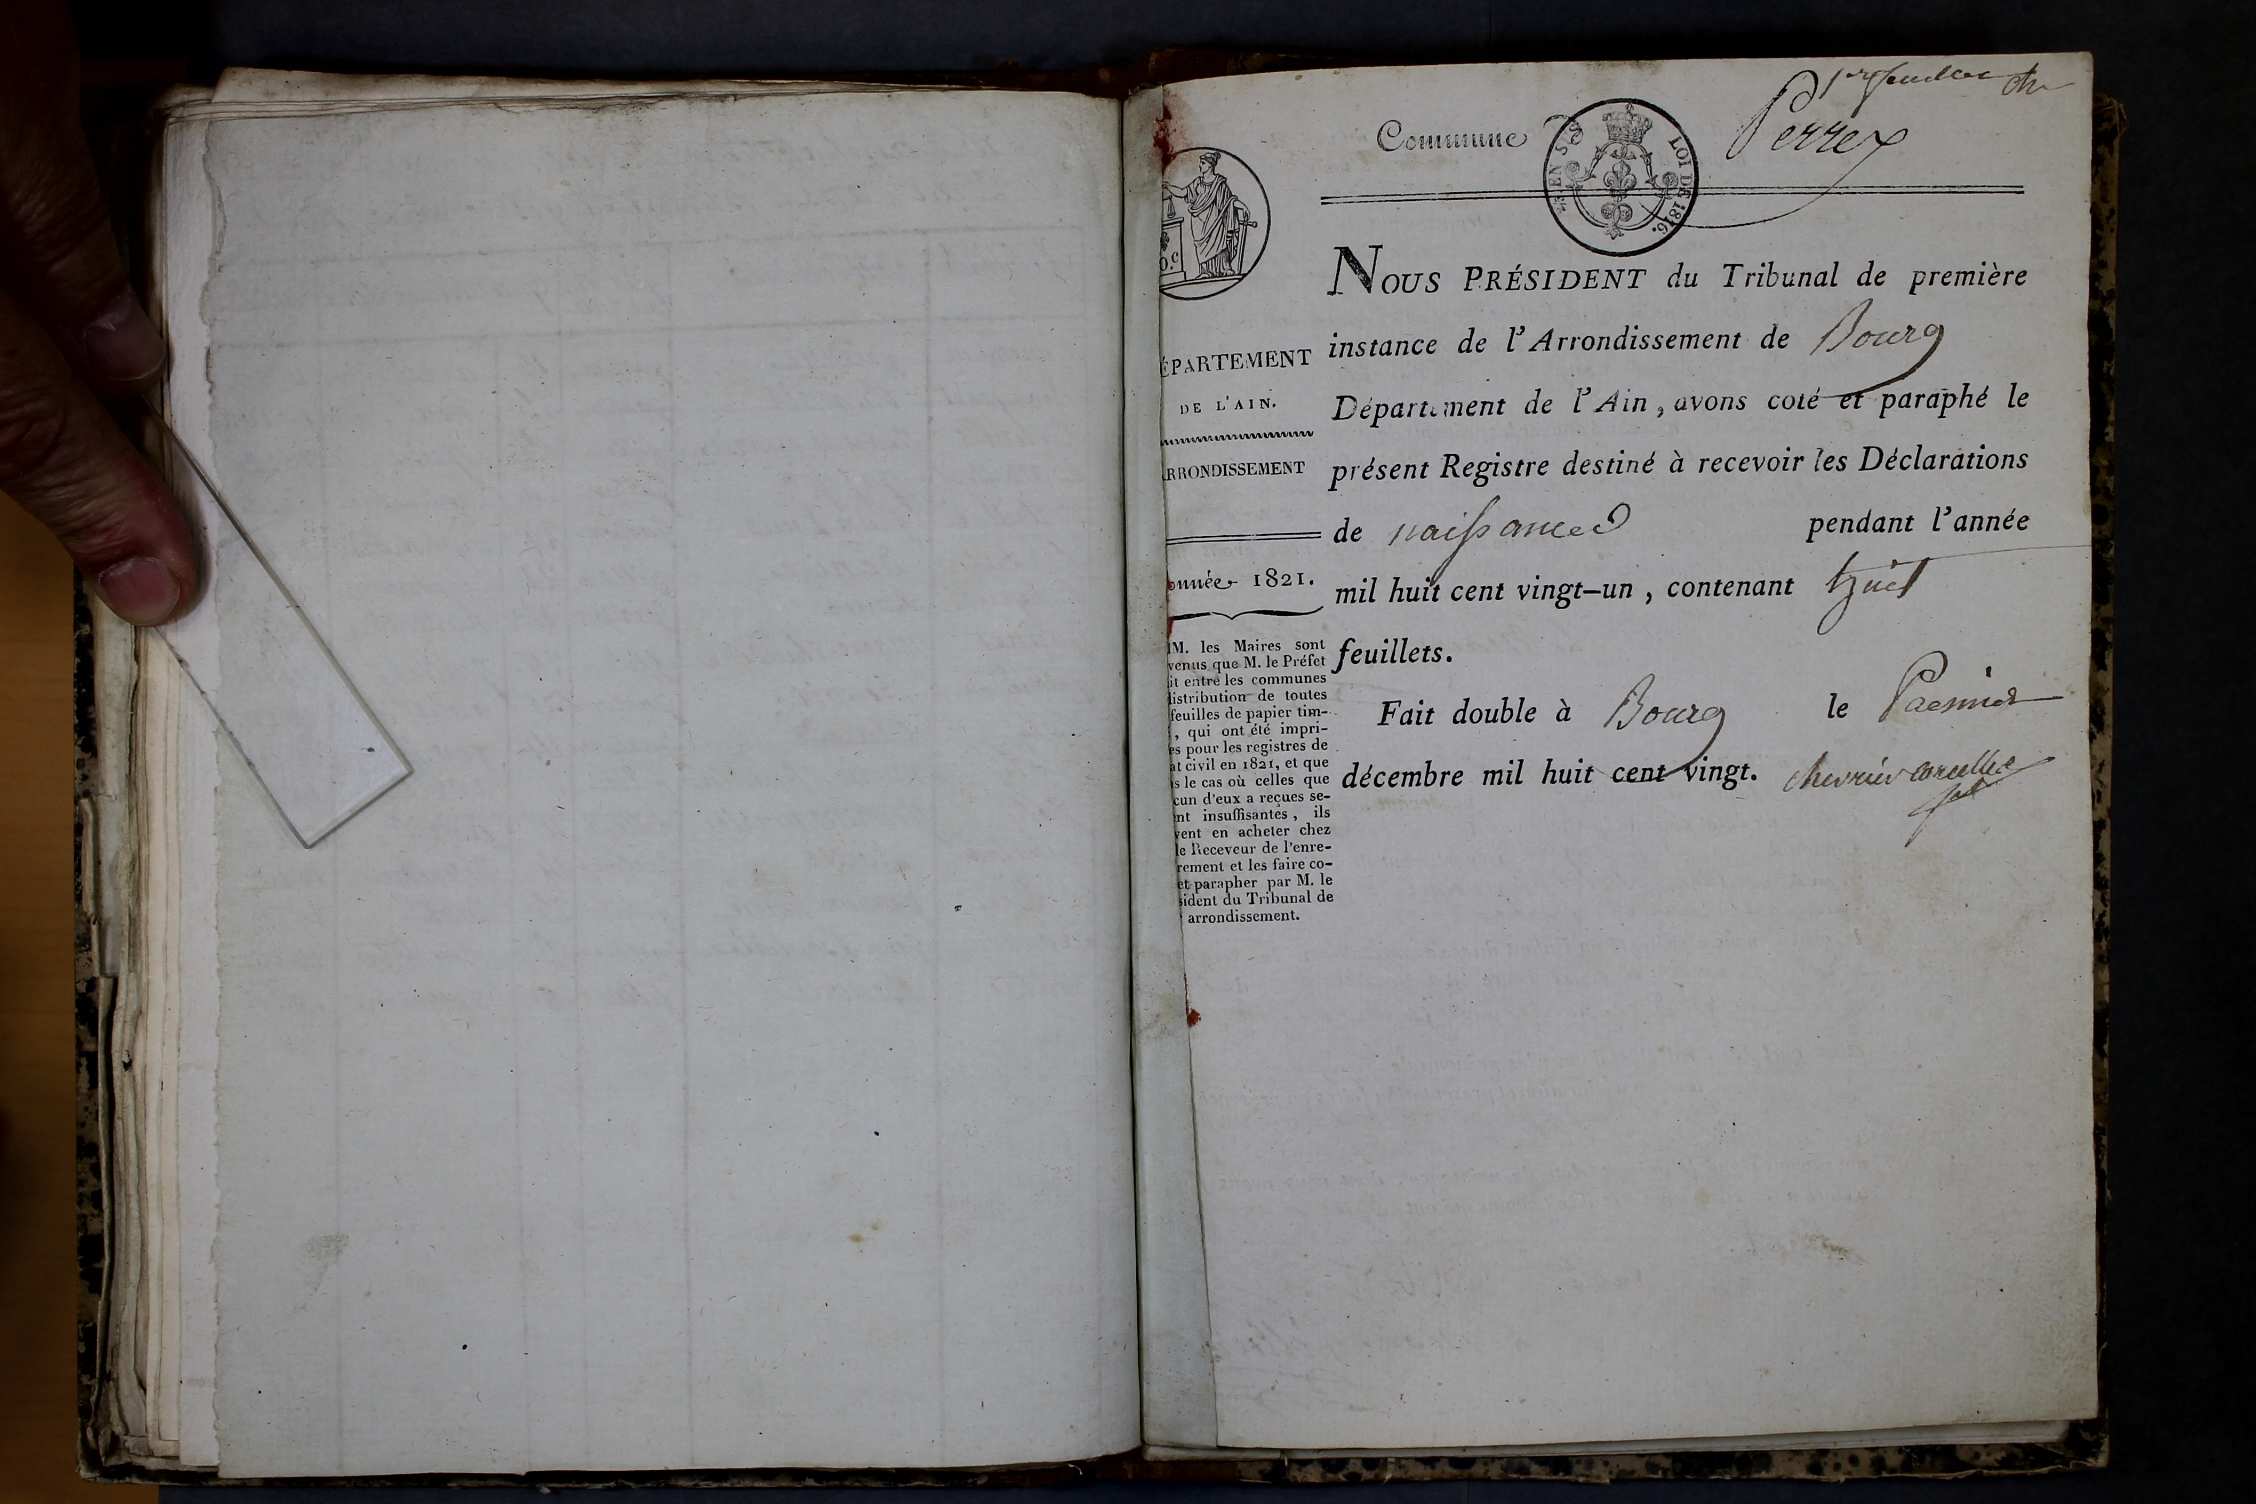 1er feuillet
Commune de Perrex
EN SUS LOI DE 1816.
NOUS PRÉSIDENT du Tribunal de première
instance de l'Arrondissement de Bourg
Département de l'Ain, avons coté et paraphé le
présent Registre destiné à recevoir les Déclarations
de naissances pendant l'année
mil huit cent vingt-un, contenant huit
feuillets.
Fait double à Bourg le Premier
décembre mil huit cent vingt.
ÉPARTEMENT
DE L'AIN.
RRONDISSEMENT
onnée 1821.
M. les Maires sont
venus que M. le Préfet
it entre les communes
istribution de toutes
feuilles de papier tim-
, qui ont été impri-
es pour les registres de
at civil en 1821, et que
s le cas où celles que
cun d'eux a reçues se-
nt insuffisantes, ils
vent en acheter chez
le Receveur de l'enre-
rement et les faire co-
et parapher par M. le
sident du Tribunal de
arrondissement.